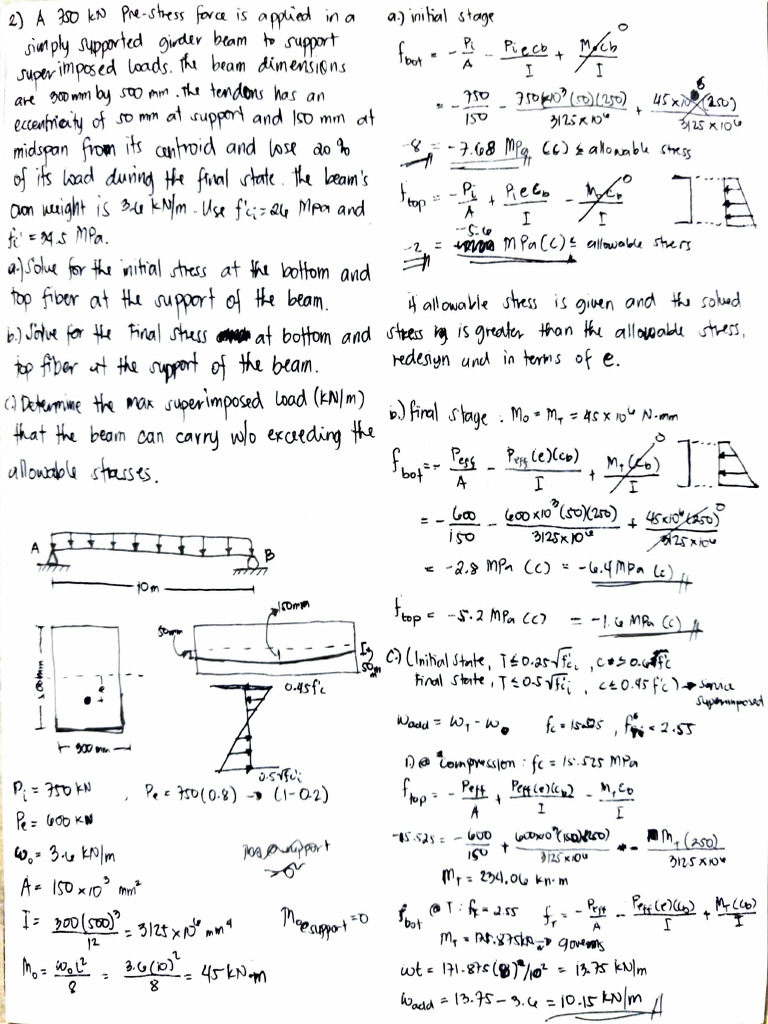 2) A 750 kN Pre-stress force is applied in a
simply supported girder beam to support
superimposed loads. The beam dimensions
are 300mm by 500 mm. The tendons has an
eccentricity of 50 mm at support and 150 mm at
midspan from its centroid and lose 20 %
of its load during the final state. The beam's
own weight is 3.6 kN/m. Use f'ci = 26 MPa and
fc' = 34.5 MPa.
a.) Solve for the initial stress at the bottom and
top fiber at the support of the beam.
b.) Solve for the Final Stress at bottom and
top fiber at the support of the beam.
c.) Determine the max superimposed Load (kN/m)
that the beam can carry w/o exceeding the
allowable stresses.
A
B
10m
500mm
e
300 mm
50mm
150mm
50mm
0.45f'c
0.5√f'ci
Pi = 750 kN , Pe = 750(0.8) → (1-0.2)
Pe = 600 kN
ωo = 3.6 kN/m
A = 150 x 10³ mm²
I = 300(500)³ / 12 = 3125 x 10⁶ mm⁴
Mo@support = 0
Mo = ωoL² / 8 = 3.6(10)² / 8 = 45 kN·m
a.) initial stage
fbot = - Pi / A - Pi e cb / I + Mo cb / I 0
= - 750 / 150 - 750 x10³ (50)(250) / 3125 x 10⁶ + 45 x10⁶ (250) / 3125 x 10⁶
-8 = -7.68 MPa (C) ≤ allowable stress
ftop = - Pi / A + Pi e cb / I - Mo cb / I 0
-5.6
-2 = MPa (C) ≤ allowable stress
if allowable stress is given and the solved
stress is greater than the allowable stress,
redesign and in terms of e.
b.) final stage : Mo = MT = 45 x 10⁶ N-mm
fbot = - Peff / A - Peff (e)(cb) / I + MT (cb) / I 0
= - 600 / 150 - 600 x10³ (50)(250) / 3125 x 10⁶ + 45x10⁶ (250) / 3125 x 10⁶ 0
= -2.8 MPa (C) = -6.4 MPa (C)
ftop = -5.2 MPa (C) = -1.6 MPa (C)
C.) (Initial State, T ≤ 0.25√f'ci, C ≤ 0.6f'c
Final state, T ≤ 0.5√f'ci, C ≤ 0.45 f'c) → service
superimposed
ωadd = ωT - ωo fc = 15.525, = 2.55
1) @ compression : fc = 15.525 MPa
ftop = - Peff / A + Peff (e)(cb) / I - MT cb / I
-15.525 = - 600 / 150 + 600x10³ (150)(250) / 3125x10⁶ - MT (250) / 3125 x 10⁶
MT = 234.06 kn-m
fbot @ T : fr = 2.55 fr = - Peff / A - Peff (e)(cb) / I + MT (cb) / I
MT = 171.875kN → governs
wt = 171.875 (8) / 10² = 13.75 kN/m
ωadd = 13.75 - 3.6 = 10.15 kN/m